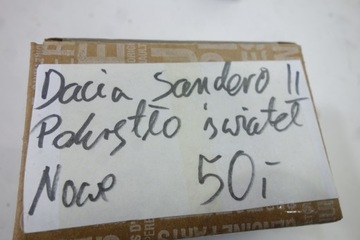 Dacia Sandero II
Pokrętło świateł
Nowe 50,-